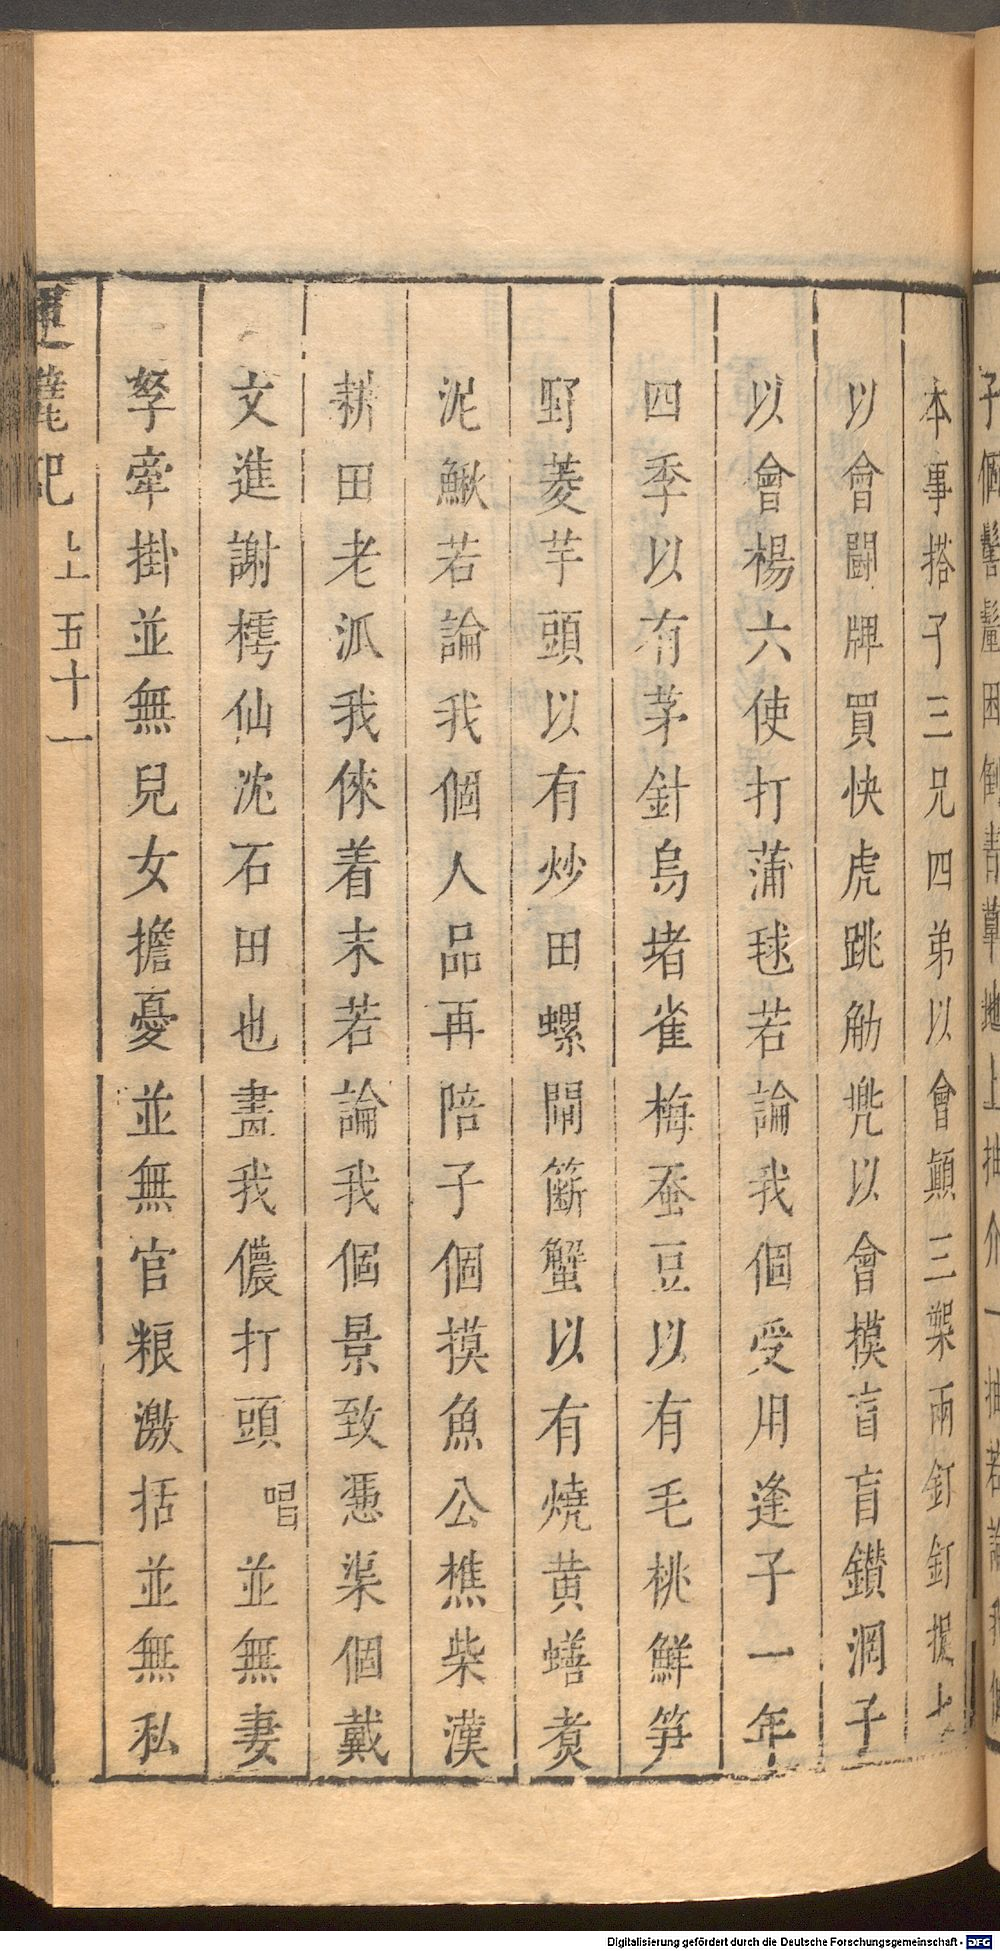 本事搭了三兄四弟以會顛三槊兩釘釘捉七
以會鬭牌買快虎跳觔兠以會摸盲盲鑚洞子
以會楊六使打蒲毬若論我個受用逢子一年
四季以有茅針烏堵雀梅蚕豆以有毛桃鮮笋
野菱芋頭以有炒田螺閙籪蟹以有燒黄蟮煑
泥鰍若論我個人品再陪子個摸魚公樵柴漢
耕田老派我倈着末若論我個景致憑渠個戴
文進謝樗仙沈石田也畫我儂打頭 唱 並無妻
孥牽掛並無兒女擔憂並無官粮激括並無私
麾記 上 五十一
Digitalisierung gefördert durch die Deutsche Forschungsgemeinschaft - DFG